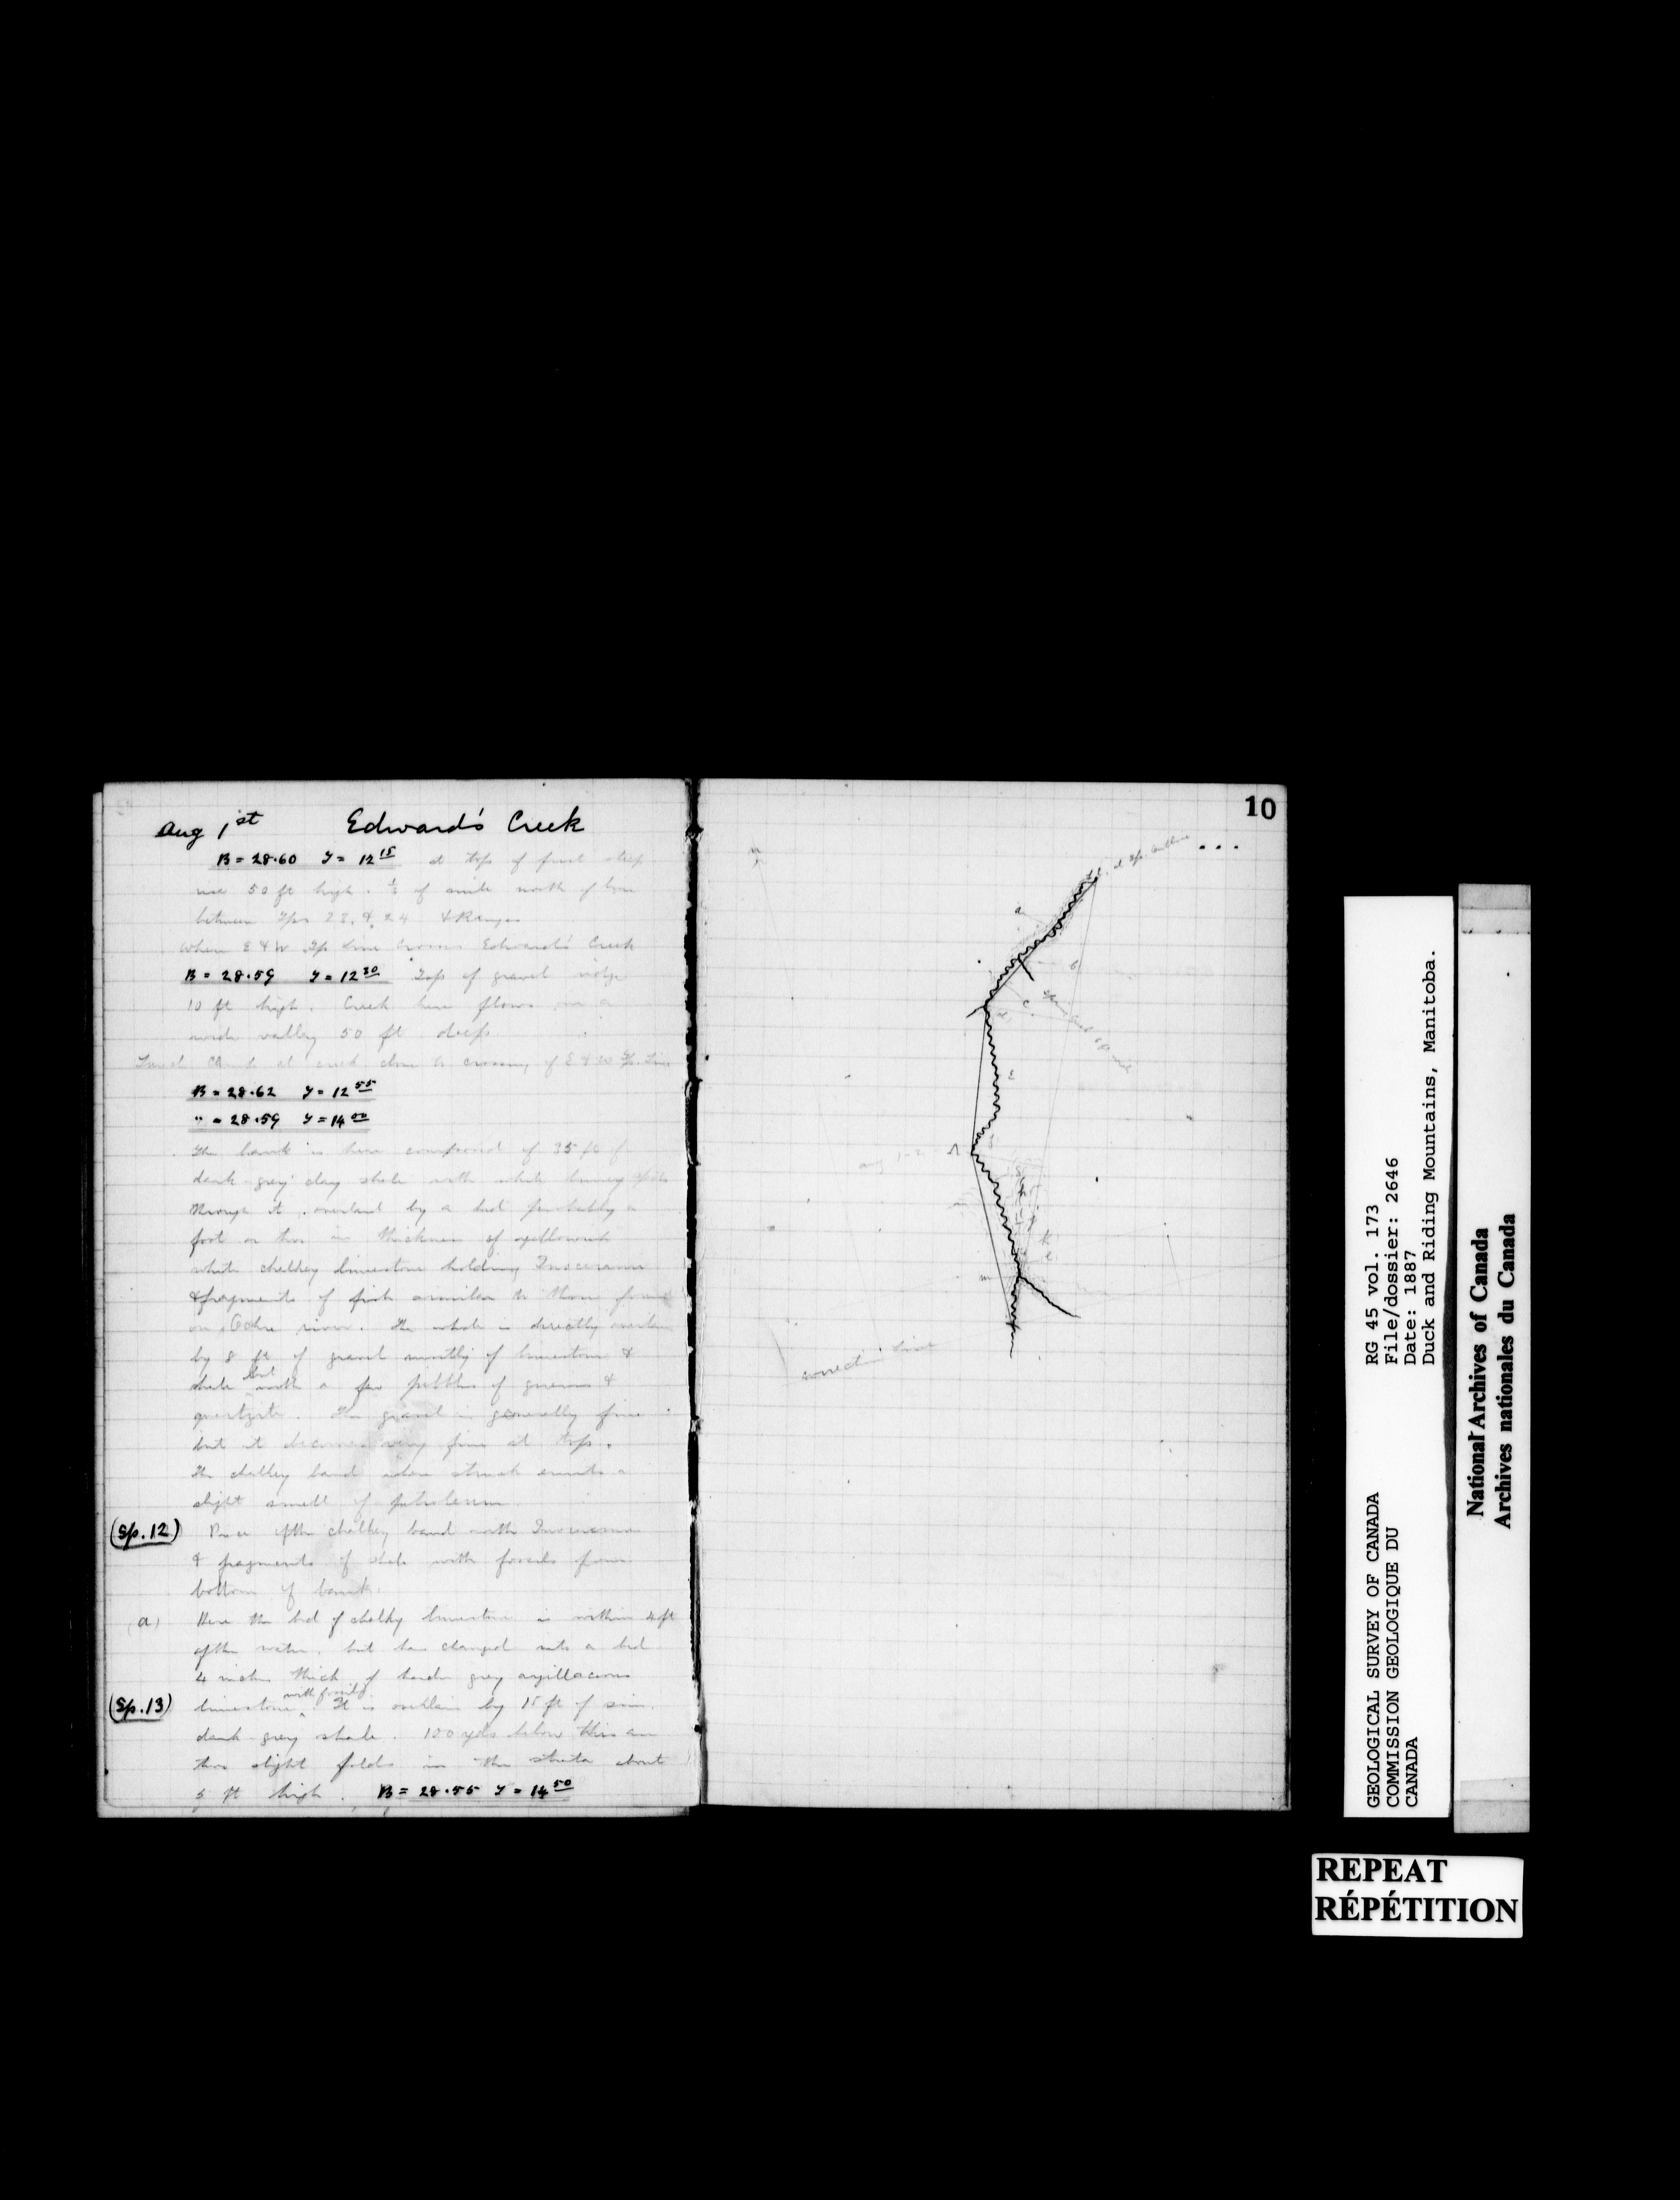 Aug 1st Edward's Creek
B = 28.60 T = 12 15 at top of first steep
rise 50 ft high. 1/2 of a mile north of line
between Tps 23 & 24 & Ranges
where E & W Tp line crosses Edward's Creek
B = 28.59 T = 12 30 Top of gravel ridge
10 ft high. Creek here flows in a
wide valley 50 ft deep
Lunch at creek close to crossing of E & W Tp. Line
B = 28.62 T = 12 55
" = 28.59 T = 14 00
The bank is here composed of 35 ft of
dark grey clay shale with white limey spots
through it, overlaid by a bed probably a
foot or two in thickness of yellowish
white chalkey limestone holding Inoceramus
& fragments of fish similar to those found
on Ochre river. The whole is directly overlain
by 8 ft of gravel mostly of limestone &
shale but with a few pebbles of gneiss &
quartzite. The gravel is generally fine
but it becomes very fine at top.
The chalkey band when struck emits a
slight smell of petroleum.
(Sp. 12) Piece of the chalkey band with Inoceramus
& fragments of shale with fossils from
bottom of bank.
(a) Here the bed of chalky limestone is within 4 ft
of the water, but has changed into a bed
4 inches thick of harder grey argillaceous
(Sp. 13) limestone with fossils. It is overlain by 15 ft of sim.
dark grey shale. 100 yds below this are
two slight folds in the strata about
5 ft high. B = 28.55 T = 14 50
10
a
b
c
d
Aug 1-2
k
l
m
correction line
GEOLOGICAL SURVEY OF CANADA
COMMISSION GEOLOGIQUE DU
CANADA
RG 45 vol. 173
File/dossier: 2646
Date: 1887
Duck and Riding Mountains, Manitoba.
National Archives of Canada
Archives nationales du Canada
REPEAT
RÉPÉTITION